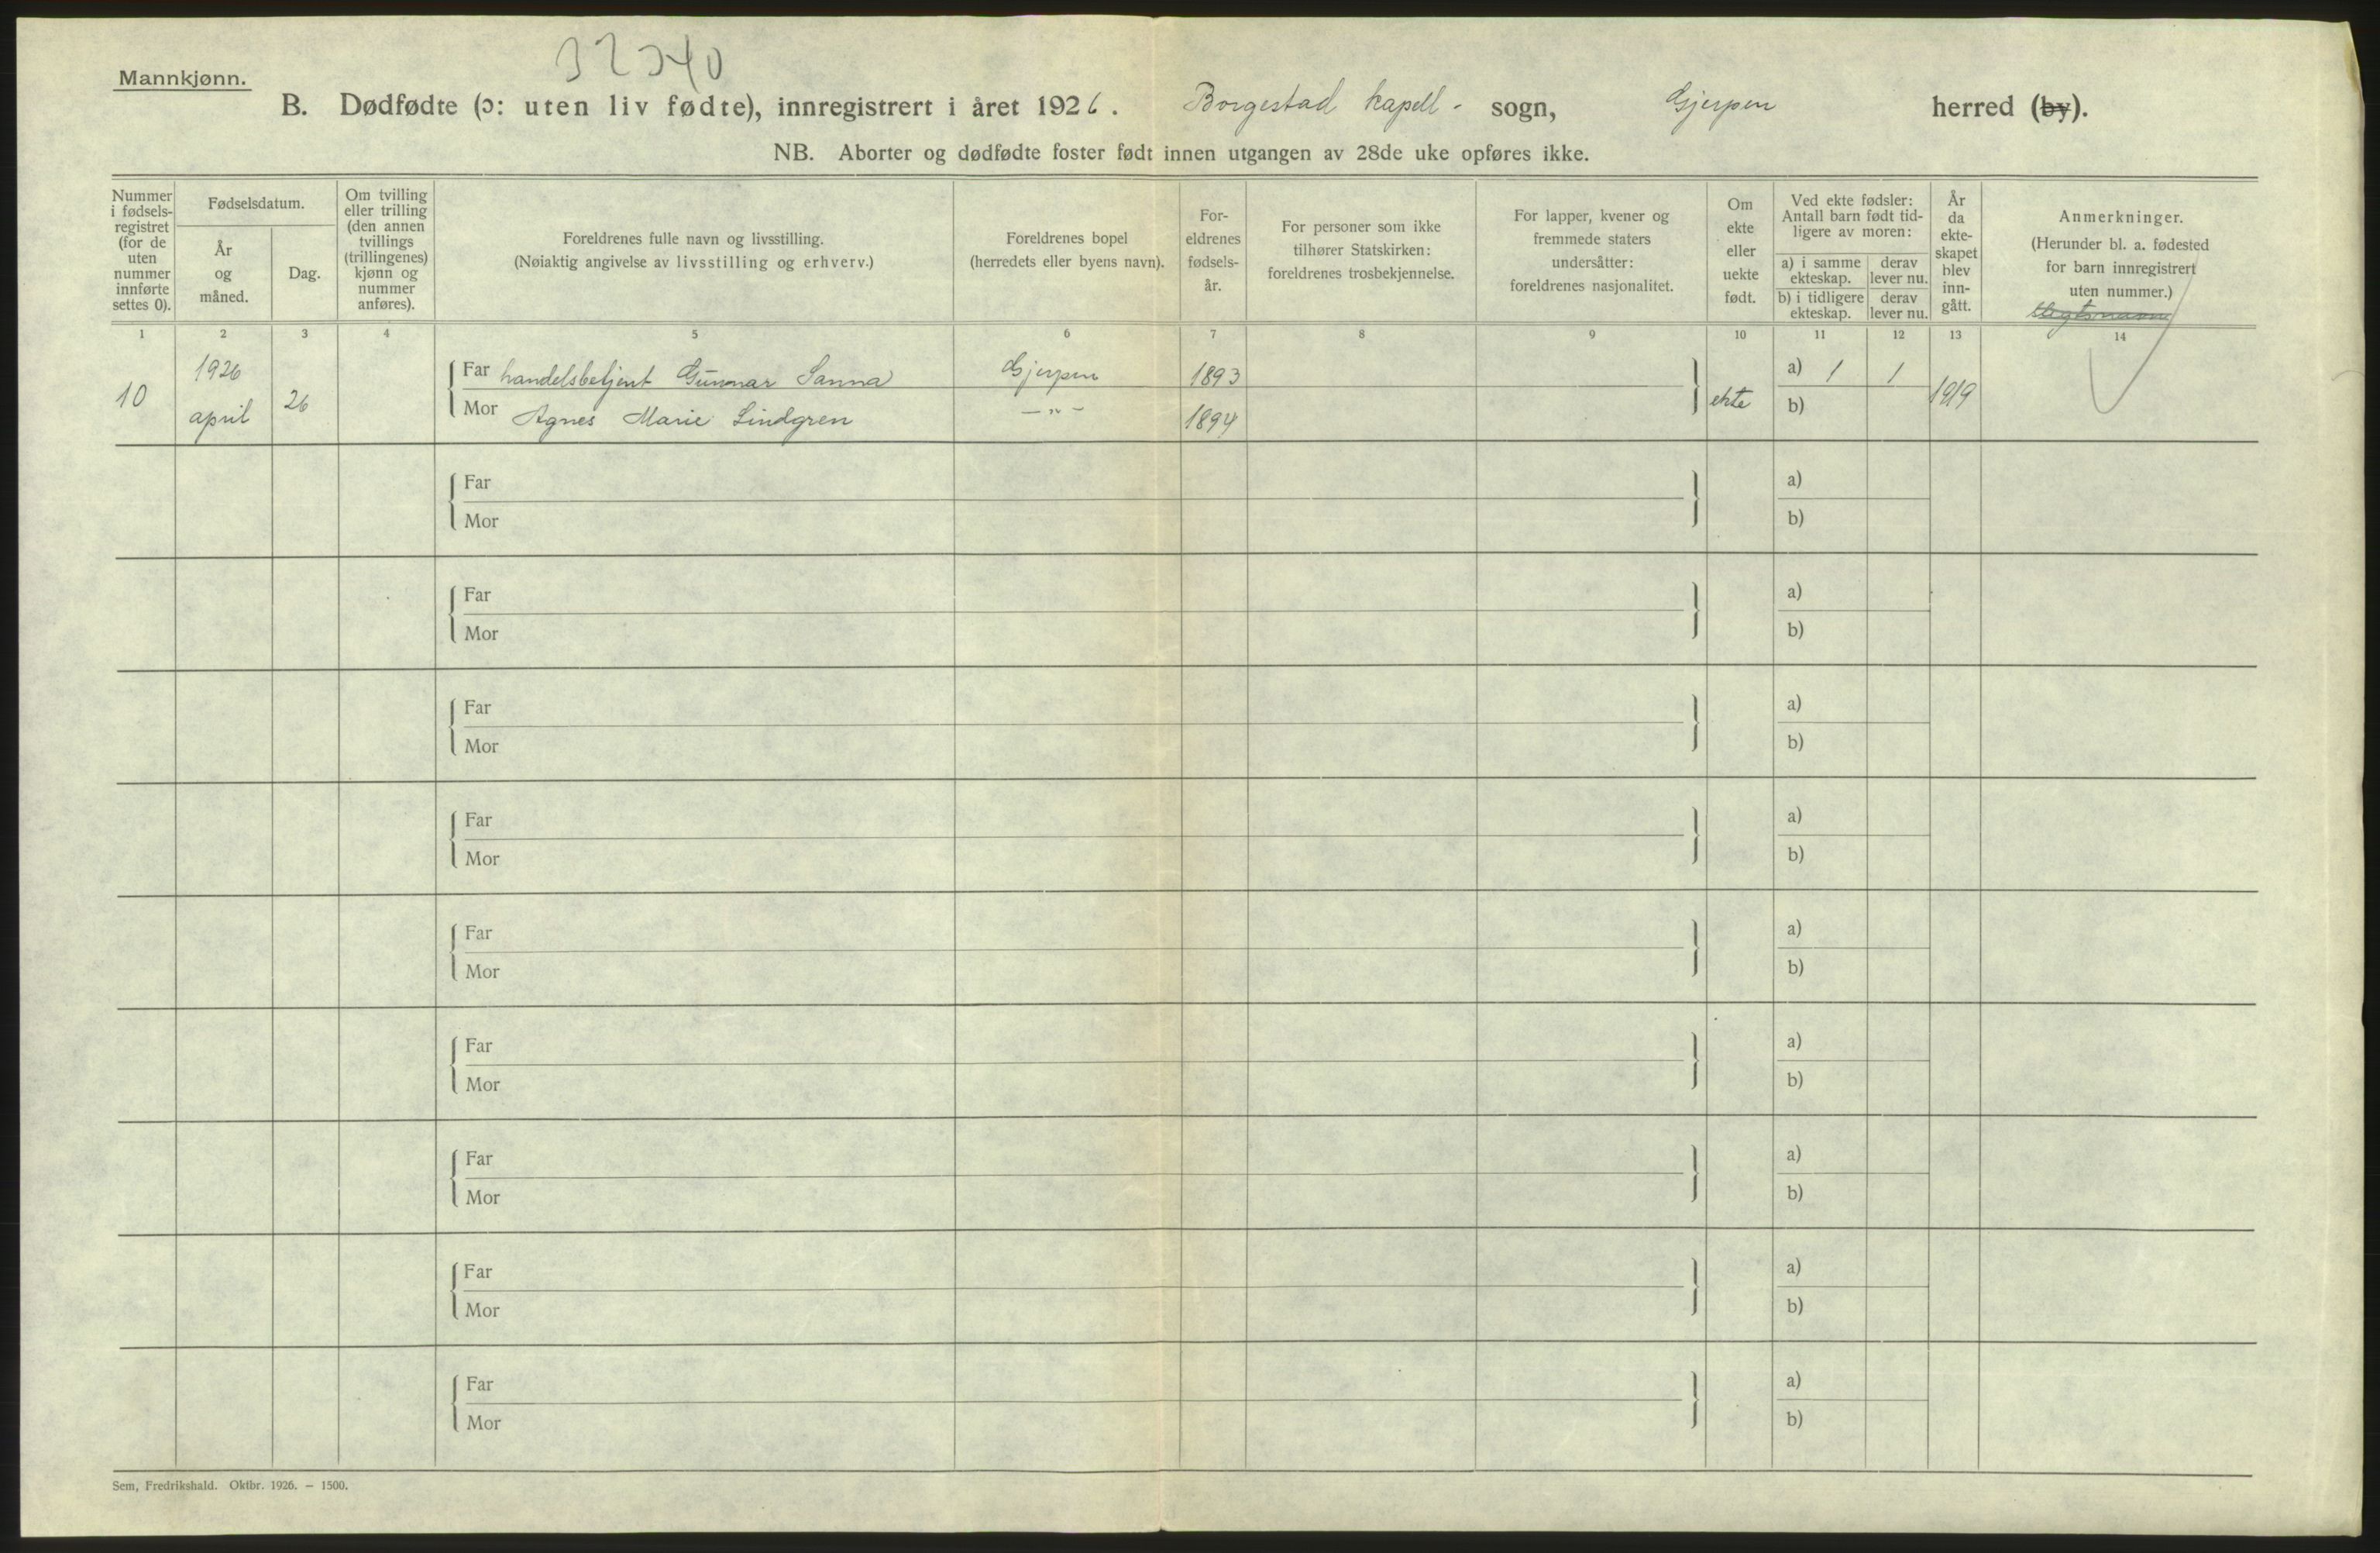 32340
Mannkjønn.
B. Dødfødte (ɔ: uten liv fødte), innregistrert i året 1926. Borgestad kapell - sogn, Gjerpen herred (by).
NB. Aborter og dødfødte foster født innen utgangen av 28de uke opføres ikke.
Nummer
i fødsels-
registret
(for de
uten
nummer
innførte
settes 0).
Fødselsdatum.
År
og
måned.
Dag.
Om tvilling
eller trilling
(den annen
tvillings
(trillingenes)
kjønn og
nummer
anføres).
Foreldrenes fulle navn og livsstilling.
(Nøiaktig angivelse av livsstilling og erhverv.)
Foreldrenes bopel
(herredets eller byens navn).
For-
eldrenes
fødsels-
år.
For personer som ikke
tilhører Statskirken:
foreldrenes trosbekjennelse.
For lapper, kvener og
fremmede staters
undersåtter:
foreldrenes nasjonalitet.
Om
ekte
eller
uekte
født.
Ved ekte fødsler:
Antall barn født tid-
ligere av moren:
a) i samme
ekteskap.
derav
lever nu.
b) i tidligere
ekteskap.
derav
lever nu.
År
da
ekte-
skapet
blev
inn-
gått.
Anmerkninger.
(Herunder bl. a. fødested
for barn innregistrert
uten nummer.)
1 2 3 4 5 6 7 8 9 10 11 12 13 14
10 1926 april 26
Far handelsbetjent Gunnar Sanna Gjerpen 1893 ekte a) 1 1 1919
Mor Agnes Marie Lindgren -"- 1894 b)
Far a)
Mor b)
Far a)
Mor b)
Far a)
Mor b)
Far a)
Mor b)
Far a)
Mor b)
Far a)
Mor b)
Far a)
Mor b)
Far a)
Mor b)
Far a)
Mor b)
Sem, Fredrikshald. Oktbr. 1926. — 1500.